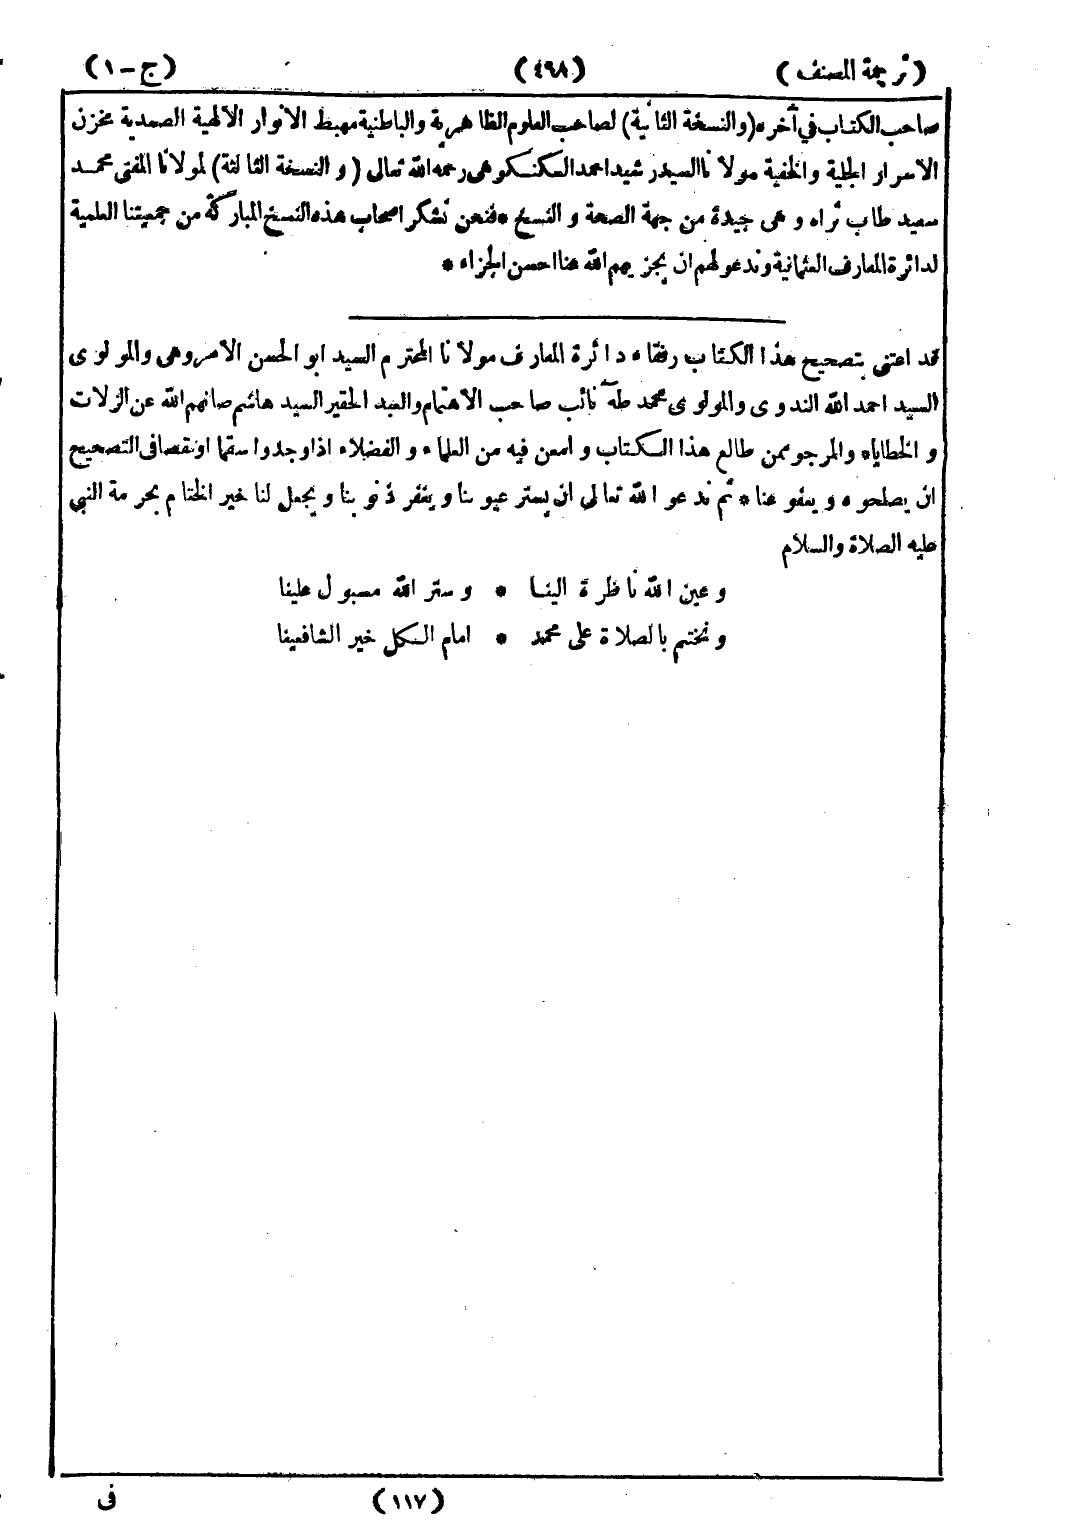 (ترجمة المصنف) (٤٩٨) (ج-١)
صاحب الكتاب في آخره (والنسخة الثانية) لصاحب العلوم الظاهرية والباطنية مهبط الانوار الالهية الصمدية مخزن
الاسرار الجلية والخفية مولانا السيد رشيد احمد السكنكوهى رحمه الله تعالى (والنسخة الثالثة) لمولانا المفتى محمد
سعيد طاب ثراه وهى جيدة من جهة الصحة والنسخ * فنحن نشكر اصحاب هذه النسخ المباركة من جمعيتنا العلمية
لدائرة المعارف العثمانية وندعو لهم ان يجزيهم الله عنا احسن الجزاء *
قد اعتنى بتصحيح هذا الكتاب رفقاء دائرة المعارف مولانا المحترم السيد ابو الحسن الامروهى والمولوى
السيد احمد الله الندوى والمولوى محمد طه نائب صاحب الاهتمام والعبد الحقير السيد هاشم صانهم الله عن الزلات
والخطايا * والمرجو ممن طالع هذا الكتاب وامعن فيه من العلماء والفضلاء اذا وجدوا سقما او نقصا فى التصحيح
ان يصلحوه ويعفو عنا * ثم ندعو الله تعالى ان يستر عيوبنا ويغفر ذنوبنا ويجعل لنا خير الختام بحرمة النبي
عليه الصلاة والسلام
وعين الله ناظرة الينا * وستر الله مسبول علينا
ونختم بالصلاة على محمد * امام الكل خير الشافعينا
(١١٧) فى